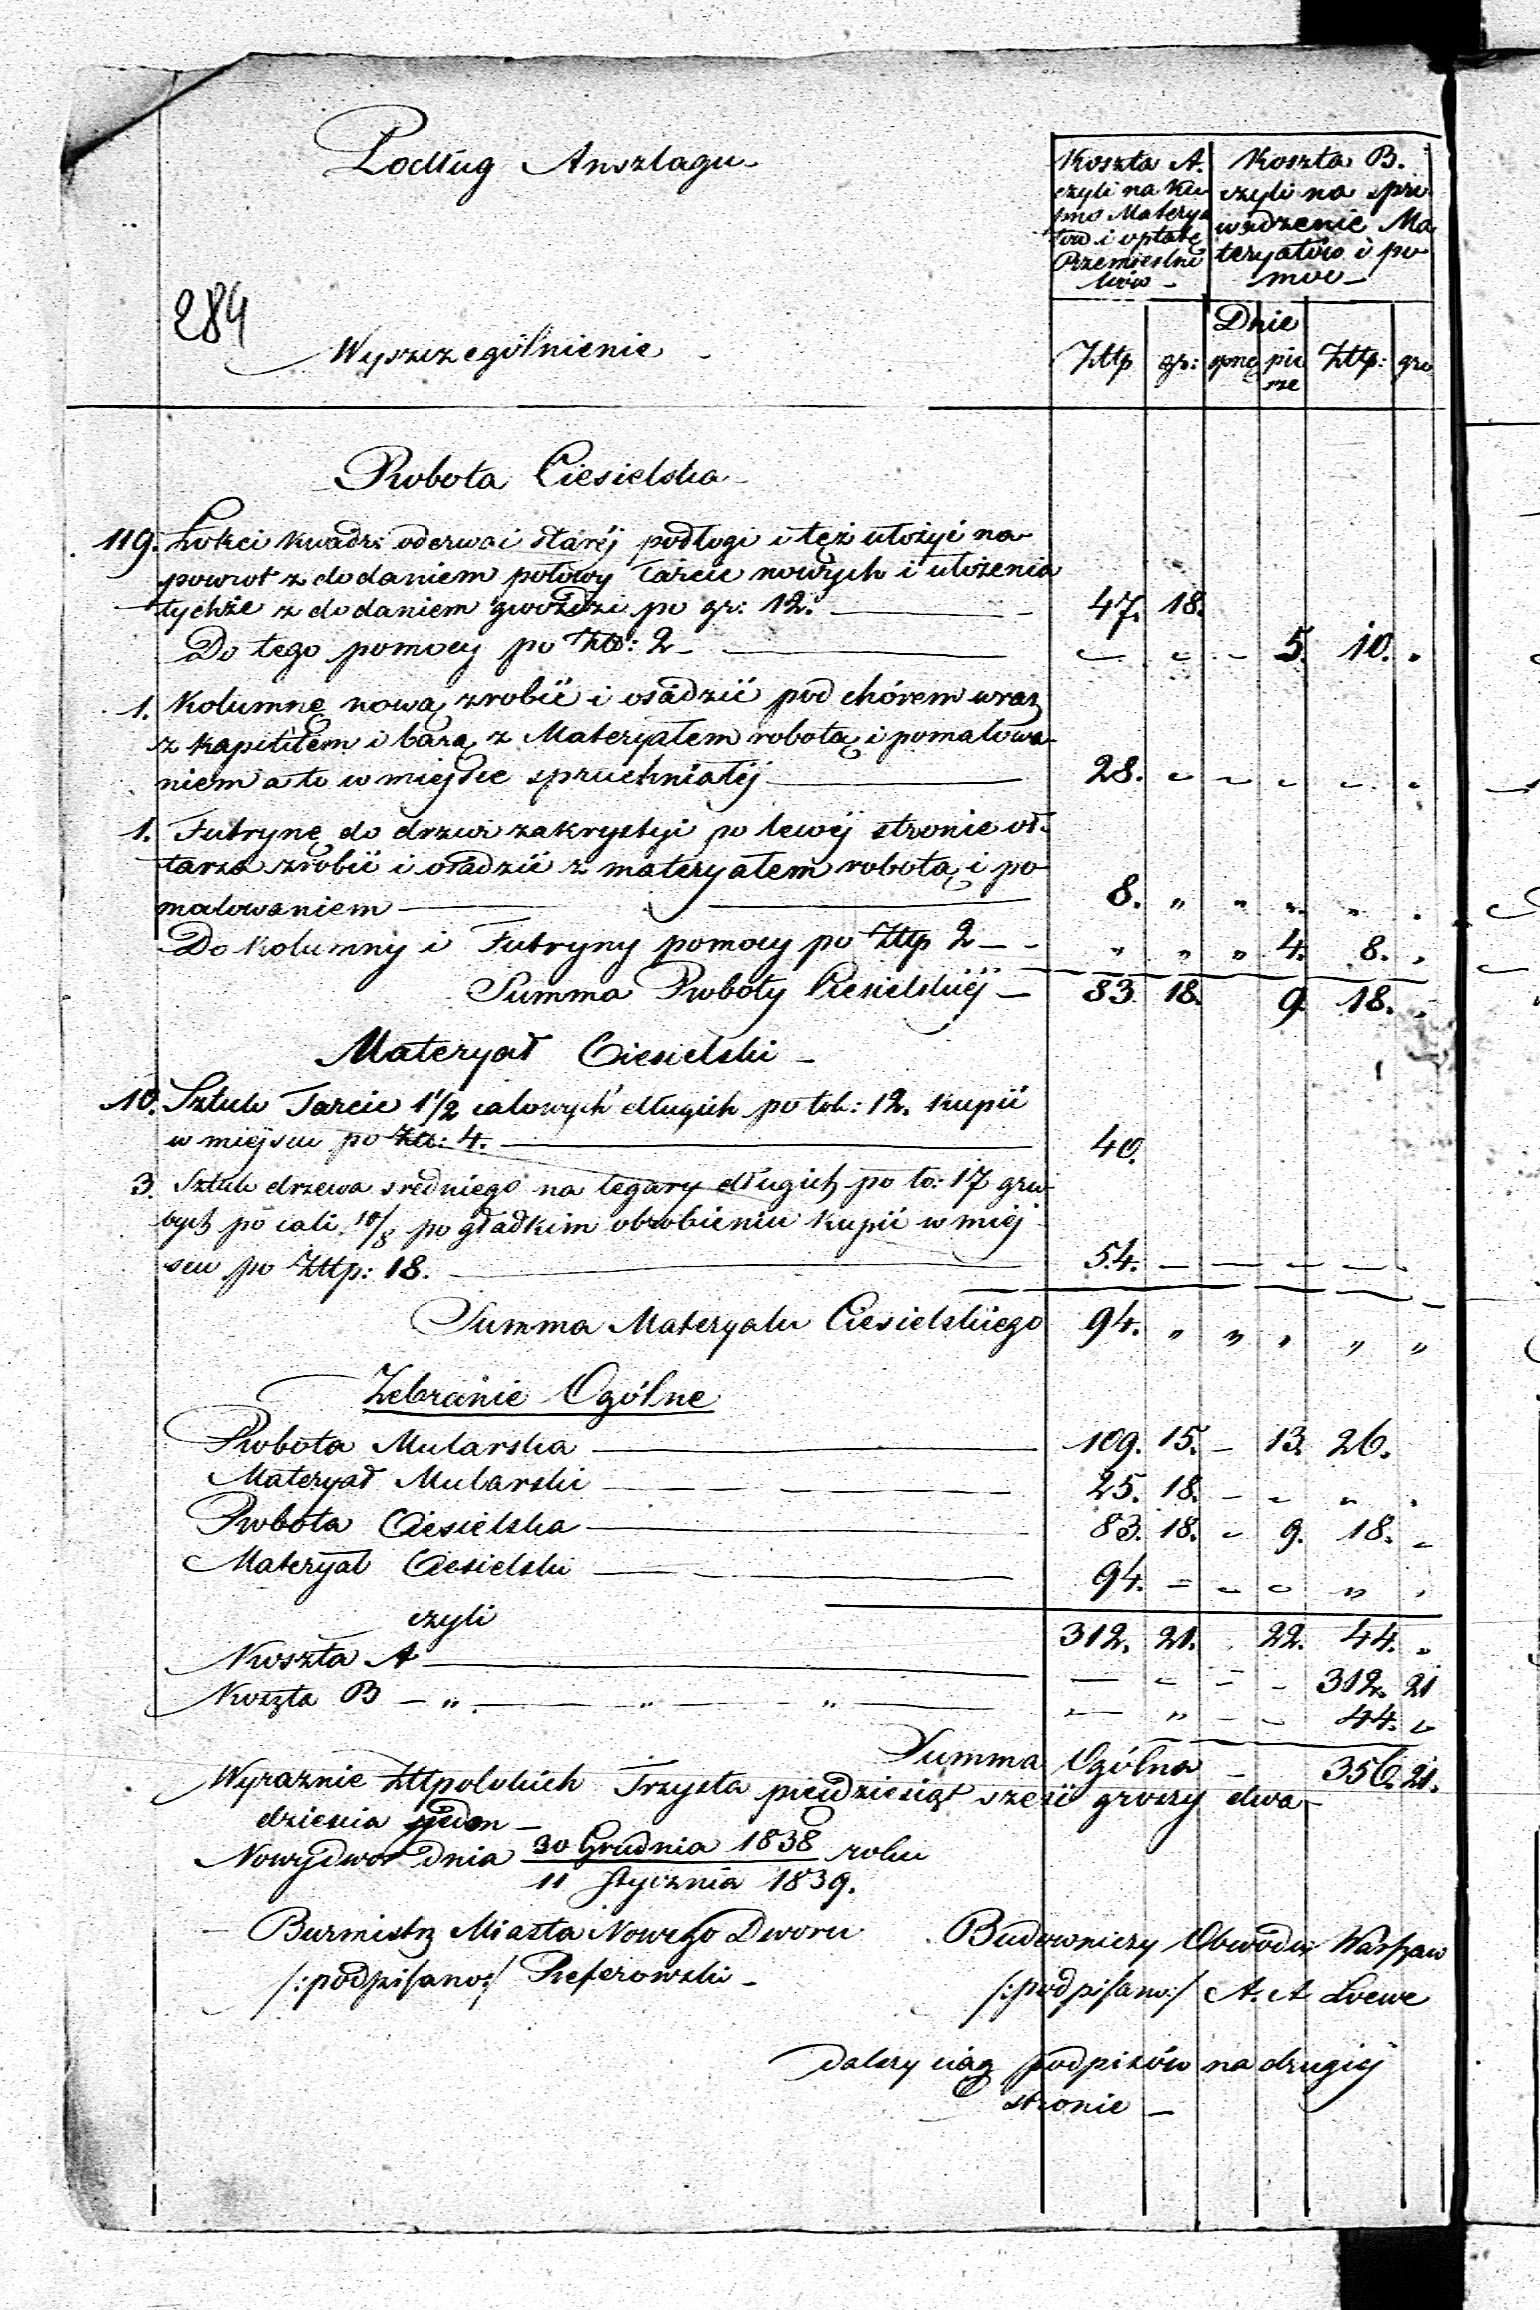 Podług Anszlagu
Koszta A.
czyli na ku
pno Materya
łów i opłatę
Rzemieślni
ków
Koszta B.
czyli na spro
wadzenie Ma
teryałów i po
moc
284
Wyszczególnienie
Dnie
Złtp gr: sprzę pie sze Złtp: gro
Robota Ciesielska
119. Łokci kwadr: oderwać starej podłogi i tęż ułożyć na
powrot z dodaniem połowy Tarcic nowych i ułożenia
tychże z dodaniem gwoździ po gr: 12. 47. 18.
Do tego pomocy po Złt: 2 5. 10. "
1. Kolumnę nową zrobić i osadzić pod chórem wraz
z kapitelem i bazą z Materyałem robotą i pomalowa
niem a to w miejsce spruchniałej 28.
1. Futrynę do drzwi zakrystyi po lewej stronie oł
tarza zrobić i osadzić z materyałem robotą i po
malowaniem 8. " " " " "
Do kolumny i Futryny pomocy po Złtp 2 " " " 4. 8. "
Summa Roboty Ciesielskiej 83. 18. 9. 18. "
Materyał Ciesielski
10. Sztuk Tarcic 1 1/2 calowych długich po łok: 12. kupić
w miejscu po Złt: 4. 40.
3. Sztuk drzewa sredniego na legary długich po ło: 17 gru
bych po cali 10/8 po gładkim obrobieniu kupić w miej
scu po Złtp: 18. 54.
Summa Materyału Ciesielskiego 94. " " " " "
Zebranie Ogólne
Robota Mularska 109. 15. 13. 26.
Materyał Mularski 25. 18.
Robota Ciesielska 83. 18. 9. 18.
Materyał Ciesielski 94.
czyli 312. 21. 22. 44. "
Koszta A 312. 21
Koszta B " " " 44. "
Summa Ogólna 356. 21.
Wyraznie Złtpolskich Trzysta piećdziesiąt sześć groszy dwa
dziescia jeden
Nowydwor dnia 30 Grudnia 1838 roku
11 Stycznia 1839.
Burmistrz Miasta Nowego Dworu
/:podpisano:/
Budowniczy Obwodu Warszaw
/:podpisano:/ A. A Loewe
Dalszy ciąg podpisów na drugiej
stronie